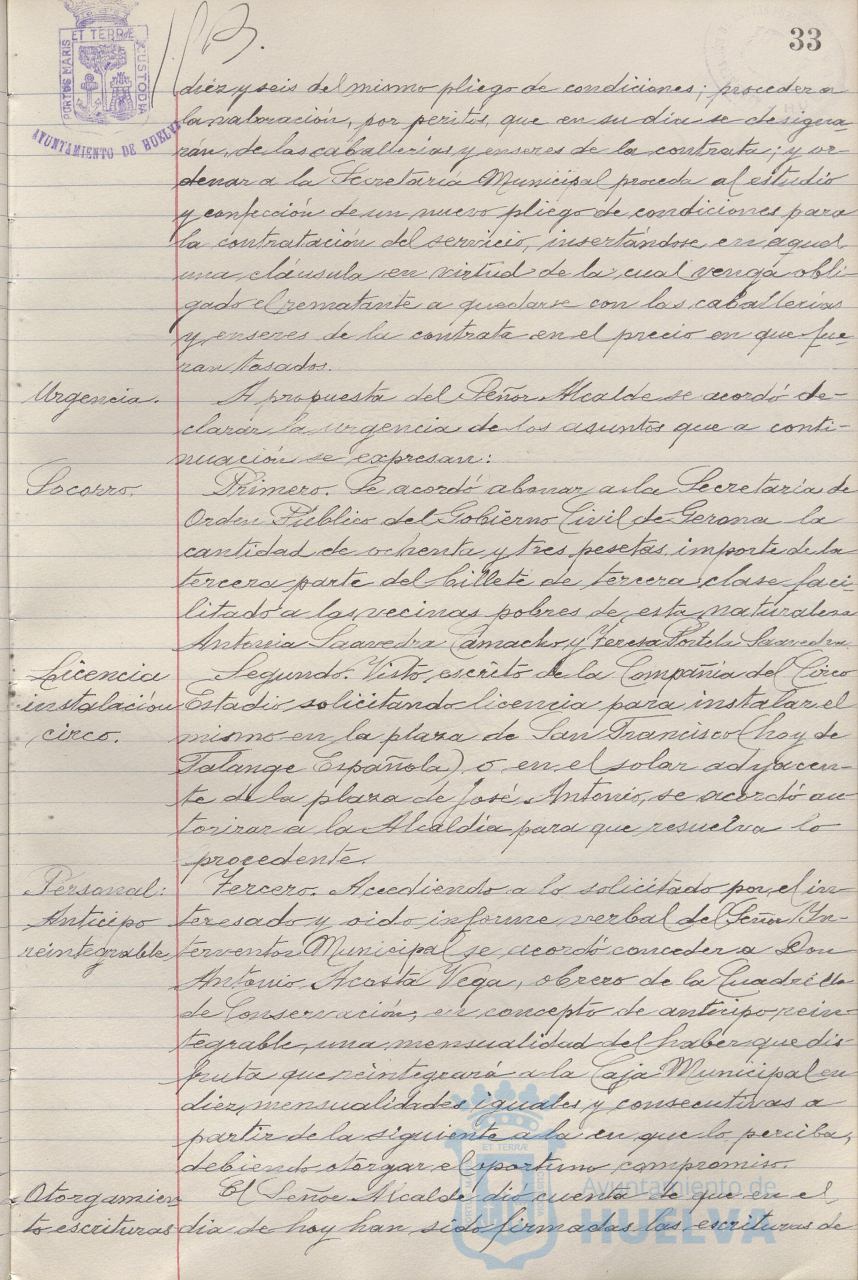 33
PORTUS MARIS ET TERRÆ CUSTODIA
AYUNTAMIENTO DE HUELVA
diez y seis del mismo pliego de condiciones; proceder a
la valoración, por peritos, que en su día se designa-
rán, de las caballerías y enseres de la contrata; y or-
denar a la Secretaría Municipal proceda al estudio
y confección de un nuevo pliego de condiciones para
la contratación del servicio, insertándose en aquel
una cláusula en virtud de la cual venga obli-
gado el rematante a quedarse con las caballerías
y enseres de la contrata en el precio en que fue-
ran tasados.
Urgencia.
A propuesta del Señor Alcalde se acordó de-
clarar la urgencia de los asuntos que a conti-
nuación se expresan:
Socorro.
Primero. Se acordó abonar a la Secretaría de
Orden Público del Gobierno Civil de Gerona la
cantidad de ochenta y tres pesetas importe de la
tercera parte del billete de tercera clase faci-
litado a las vecinas pobres de esta naturaleza
Antonia Saavedra Camacho y Teresa Portela Saavedra.
Licencia
instalación
circo.
Segundo. Visto escrito de la Compañía del Circo
Estadio, solicitando licencia para instalar el
mismo en la plaza de San Francisco (hoy de
Falange Española) o en el solar adyacen-
te de la plaza de José Antonio, se acordó au-
torizar a la Alcaldía para que resuelva lo
procedente.
Personal:
Anticipo
reintegrable
Tercero. Accediendo a lo solicitado por el in-
teresado y oido informe verbal del Señor In-
terventor Municipal se acordó conceder a Don
Antonio Acosta Vega, obrero de la Cuadrilla
de Conservación, en concepto de anticipo rein-
tegrable, una mensualidad del haber que dis-
fruta que reintegrará a la Caja Municipal en
diez mensualidades iguales y consecutivas a
partir de la siguiente a la en que lo perciba,
debiendo otorgar el oportuno compromiso.
Otorgamien-
to escrituras
El Señor Alcalde dió cuenta de que en el
dia de hoy han sido firmadas las escrituras de
ET TERRÆ
Ayuntamiento de
HUELVA